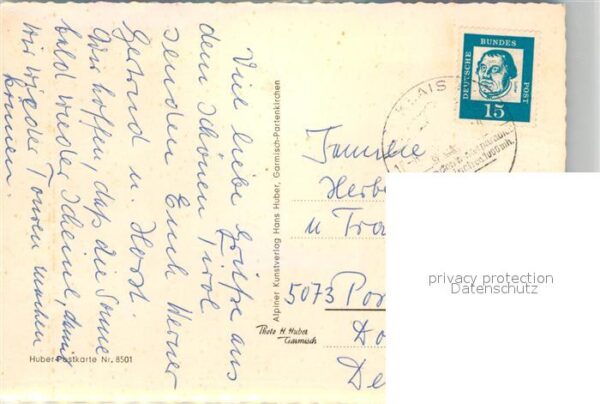 Viele liebe Grüße aus
dem schönen Tirol
senden Euch Werner
Gertrud u. Horst
Wir hoffen, daß die Sonne
bald wieder scheint, damit
wir wieder Touren machen
können.
Huber-Postkarte Nr. 8501
Alpiner Kunstverlag Hans Huber, Garmisch-Partenkirchen
Photo H. Huber
Garmisch
DEUTSCHE
BUNDES
POST
15
KLAIS
Familie
Herbe
u Tra
5073 Por
Do
De
privacy protection
Datenschutz